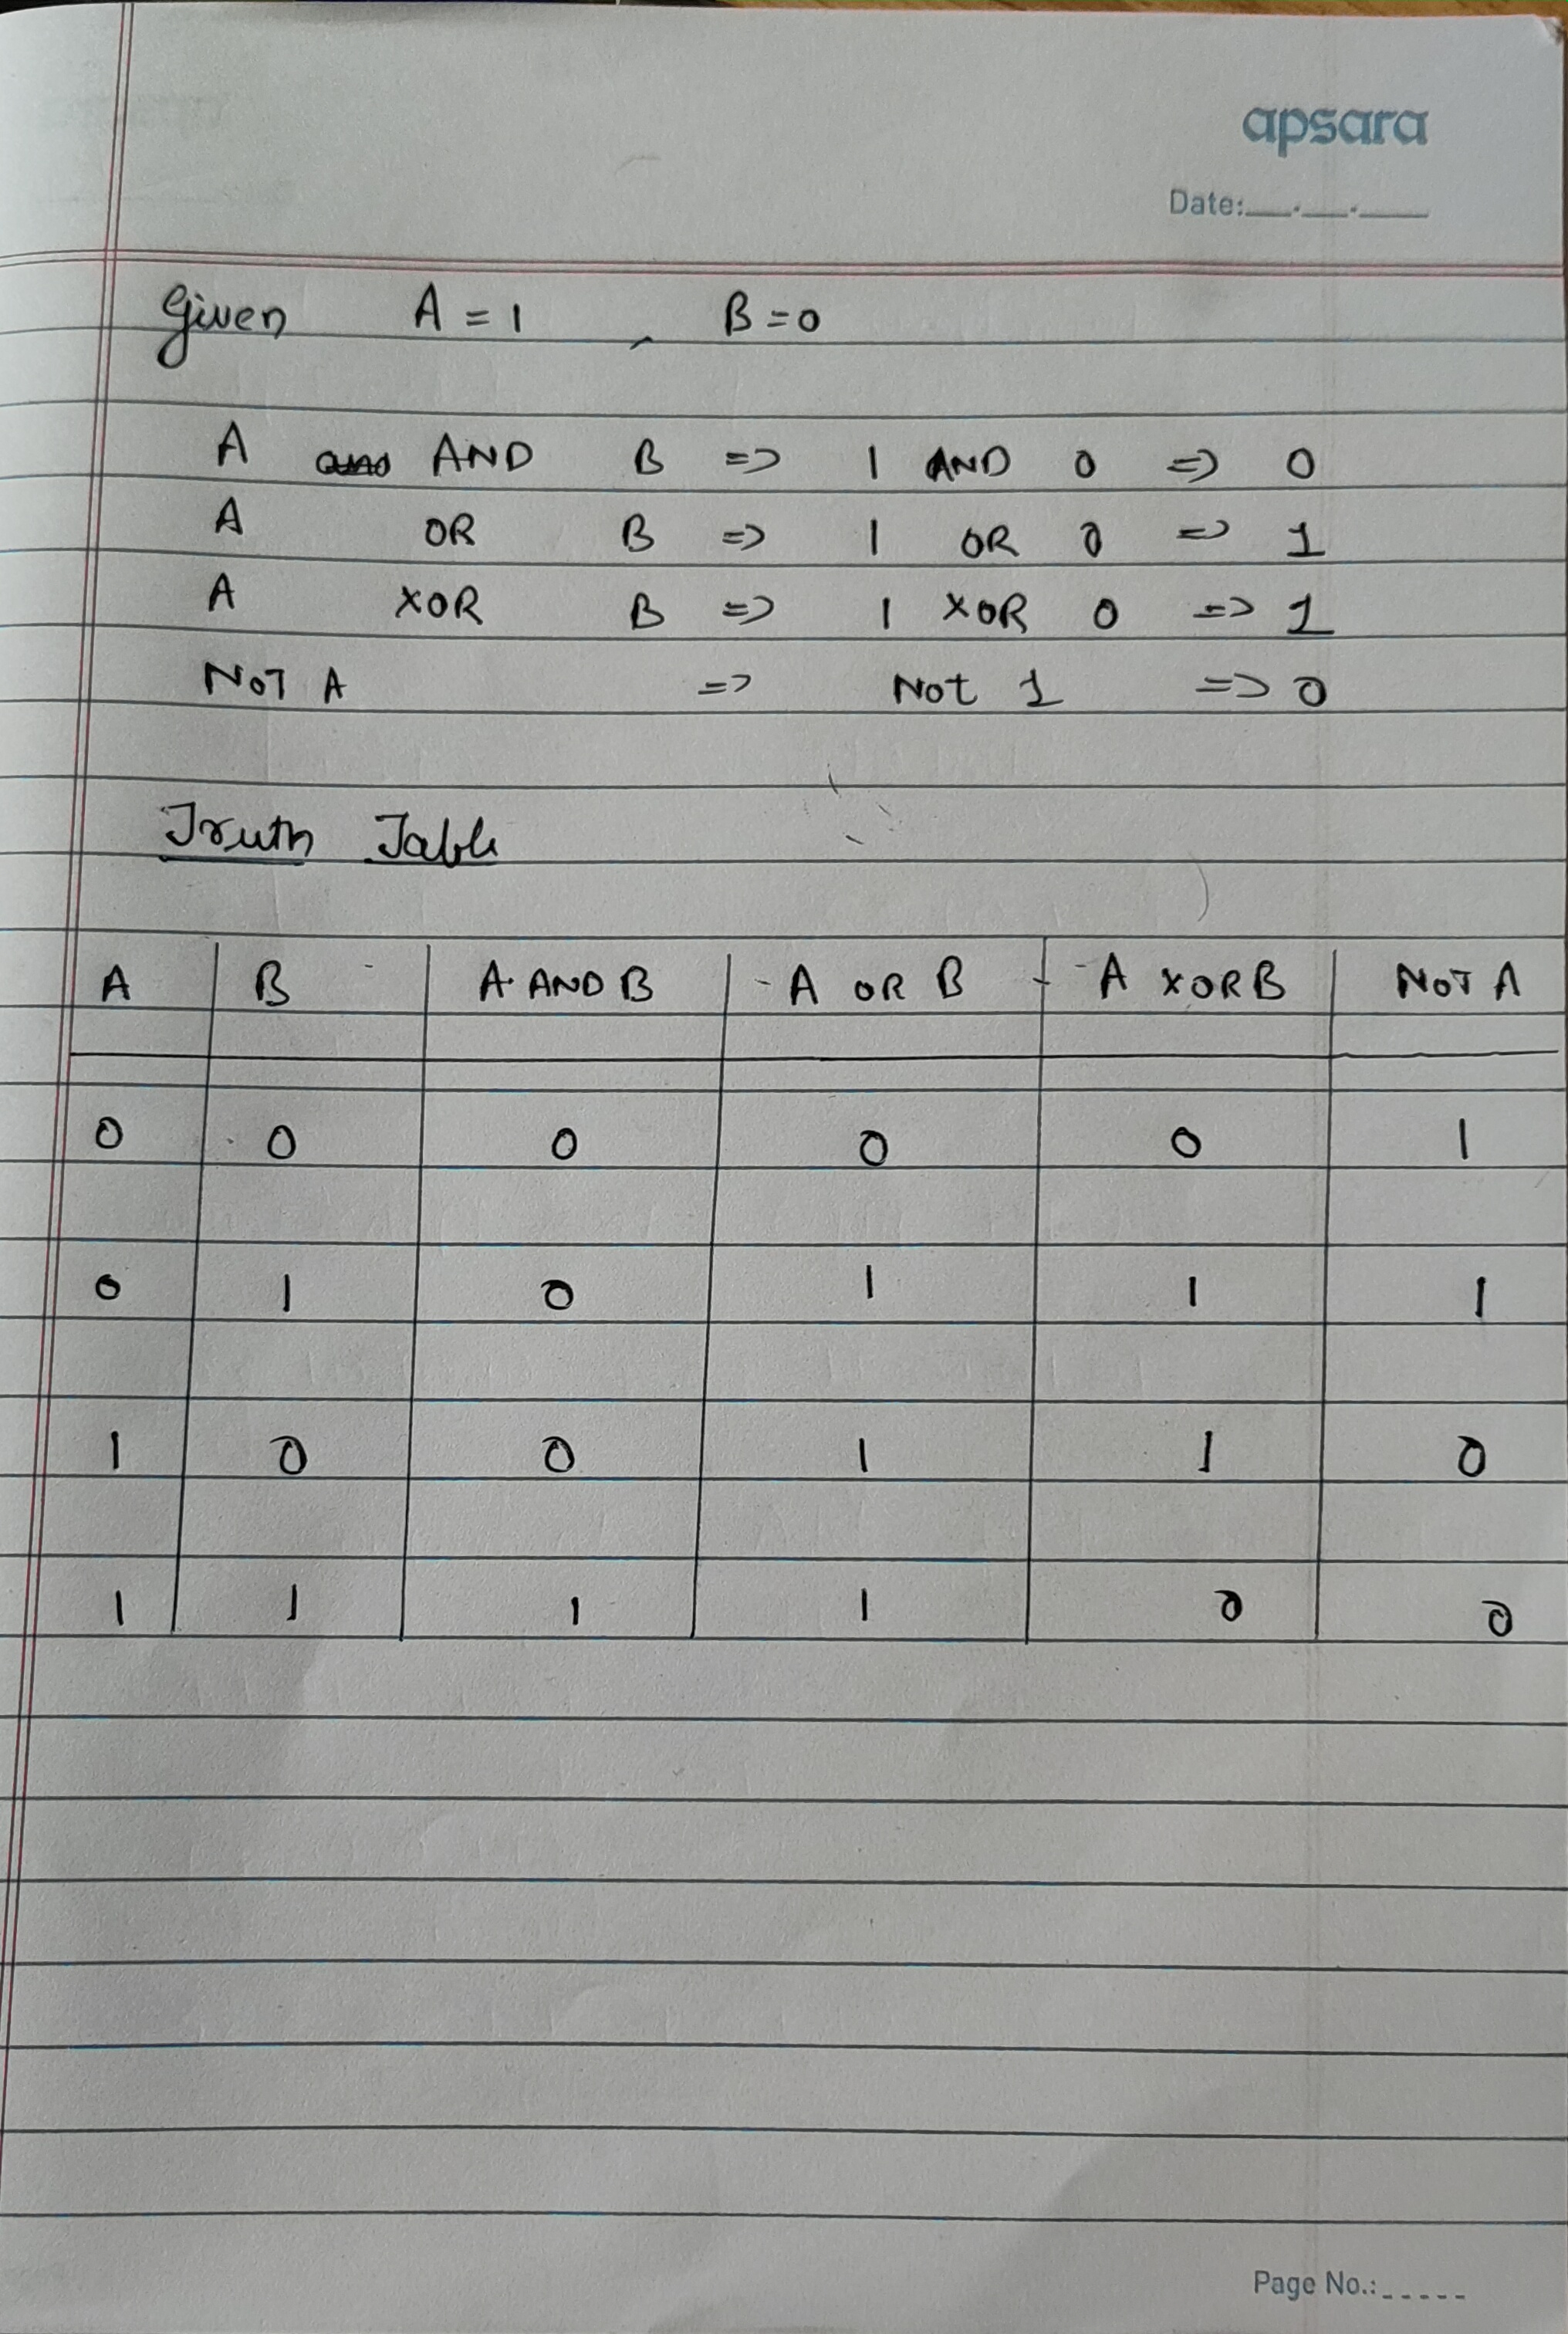 apsara
Date:__.__.___
Given A = 1 , B = 0
A AND B => 1 AND 0 => 0
A OR B => 1 OR 0 => 1
A XOR B => 1 XOR 0 => 1
NOT A => Not 1 => 0
Truth Table
A B A AND B A OR B A XOR B NOT A
0 0 0 0 0 1
0 1 0 1 1 1
1 0 0 1 1 0
1 1 1 1 0 0
Page No.:_____